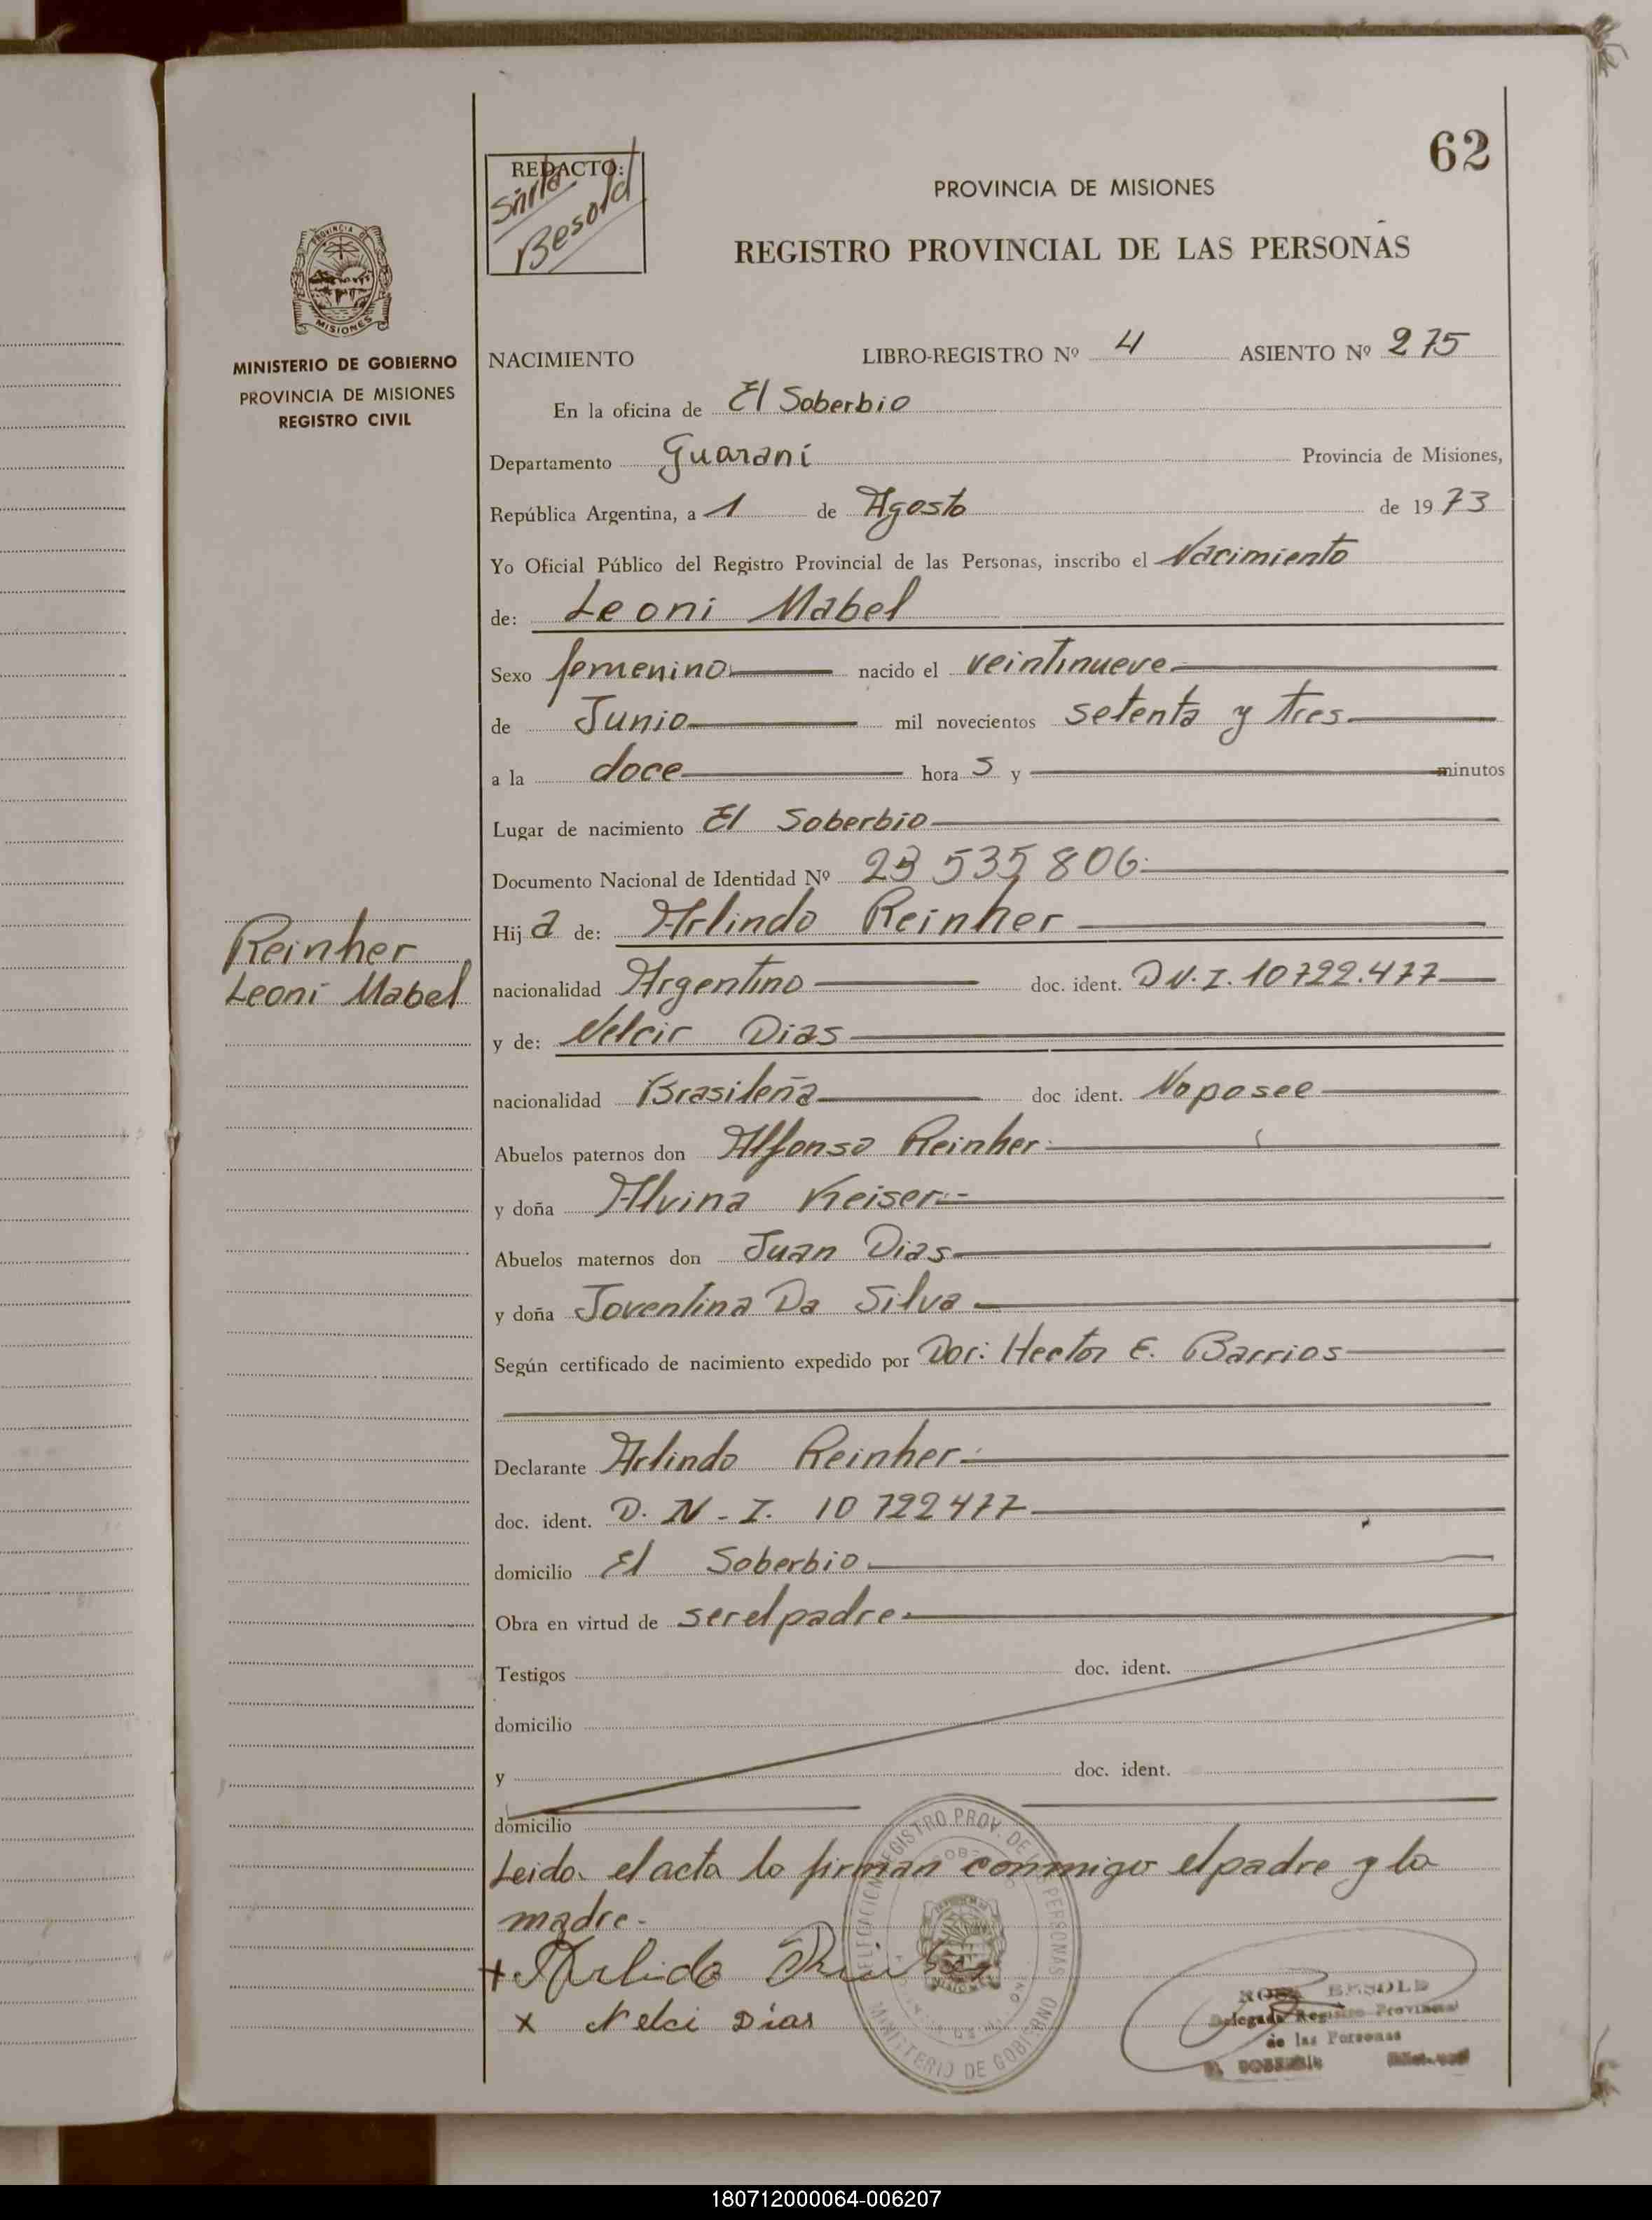 62
REDACTO:
Besold
PROVINCIA DE MISIONES
REGISTRO PROVINCIAL DE LAS PERSONAS
PROVINCIA DE
MISIONES
MINISTERIO DE GOBIERNO
PROVINCIA DE MISIONES
REGISTRO CIVIL
NACIMIENTO LIBRO-REGISTRO Nº 4 ASIENTO Nº 275
En la oficina de El Soberbio
Departamento Guaraní Provincia de Misiones,
República Argentina, a 1 de Agosto de 1973
Yo Oficial Público del Registro Provincial de las Personas, inscribo el Nacimiento
de: Leoni Mabel
Sexo femenino nacido el veintinueve
de Junio mil novecientos setenta y tres
a la doce hora s y minutos
Lugar de nacimiento El Soberbio
Documento Nacional de Identidad Nº 23 535 806
Hija de: Arlindo Reinher
Reinher
Leoni Mabel
nacionalidad Argentino doc. ident. D N. I. 10722.477
y de: Nelcir Dias
nacionalidad Brasileña doc ident. No posee
Abuelos paternos don Alfonso Reinher
y doña Alvina Keiser
Abuelos maternos don Juan Dias
y doña Joventina Da Silva
Según certificado de nacimiento expedido por Dor: Hector E. Barrios
Declarante Arlindo Reinher
doc. ident. D. N - I. 10 722 477
domicilio El Soberbio
Obra en virtud de ser el padre
Testigos doc. ident.
domicilio
y doc. ident.
domicilio
Leida el acta lo firman conmigo el padre y la
madre.
DELEGACION REGISTRO PROV. DE LAS PERSONAS
MINISTERIO DE GOBIERNO
+ Arlindo
x Nelci Días
BESOLD
Delegada Registro Provincial
de las Personas
180712000064-006207